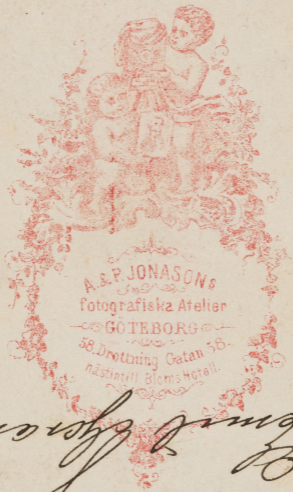 A. & P. JONASONs
fotografiska Atelier
GÖTEBORG
58, Drottning Gatan 58.
nästintill Blomshotell.